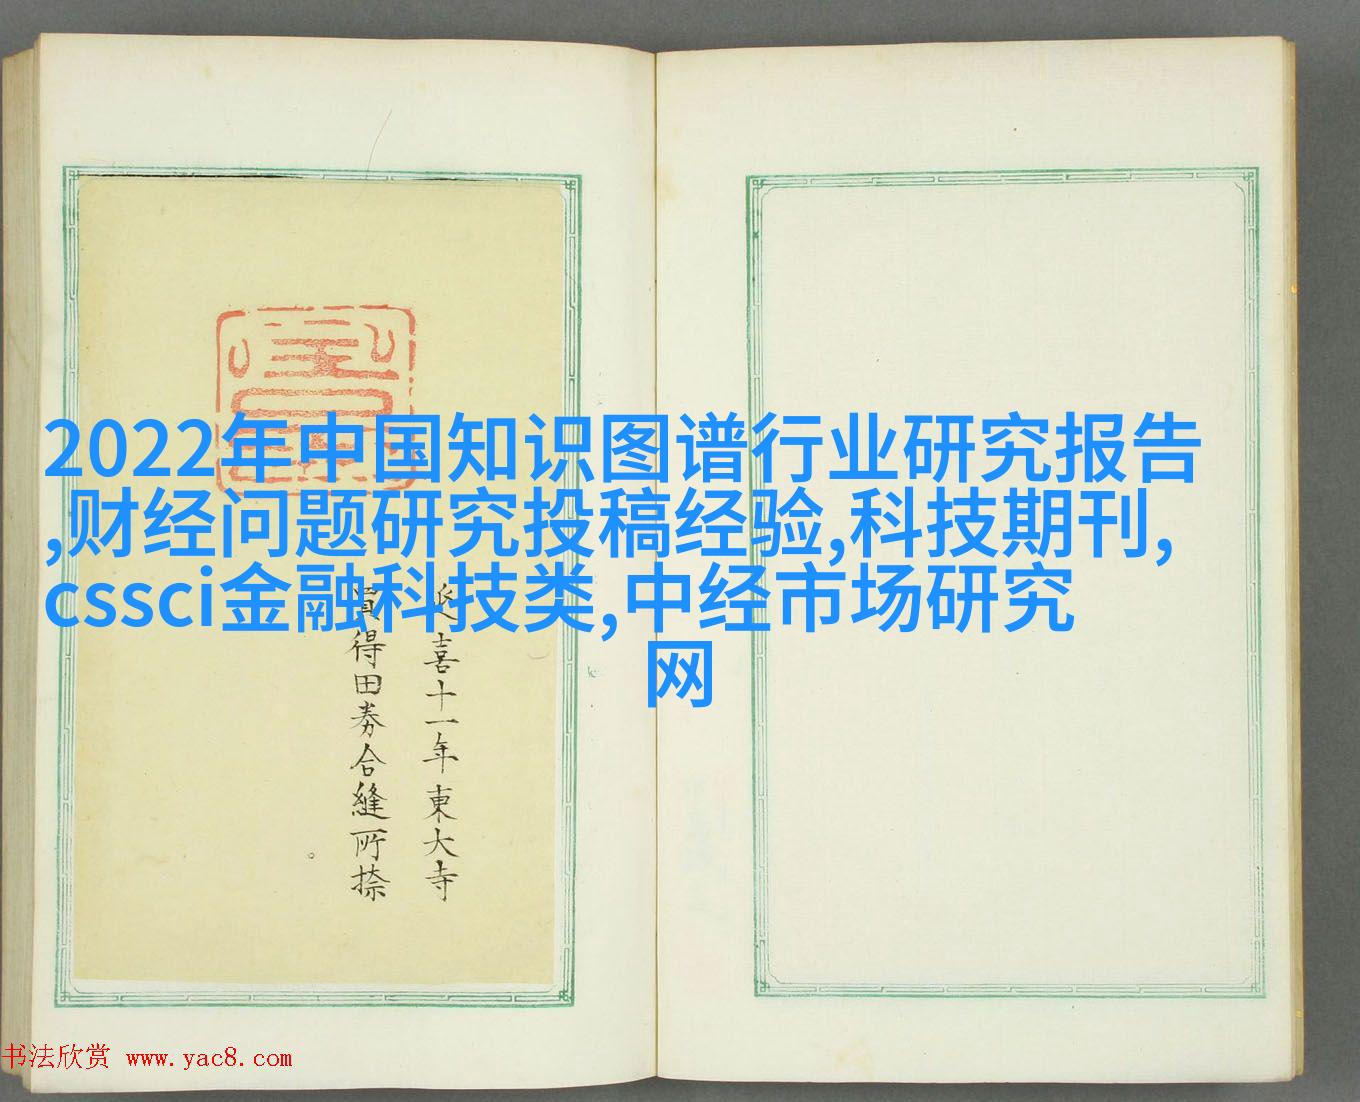 2022年中国知识图谱行业研究报告
,财经问题研究投稿经验,科技期刊,
cssci金融科技类,中经市场研究
网
延喜十一年東大寺
買得田券合縫所捺
书法欣赏 www.yac8.com